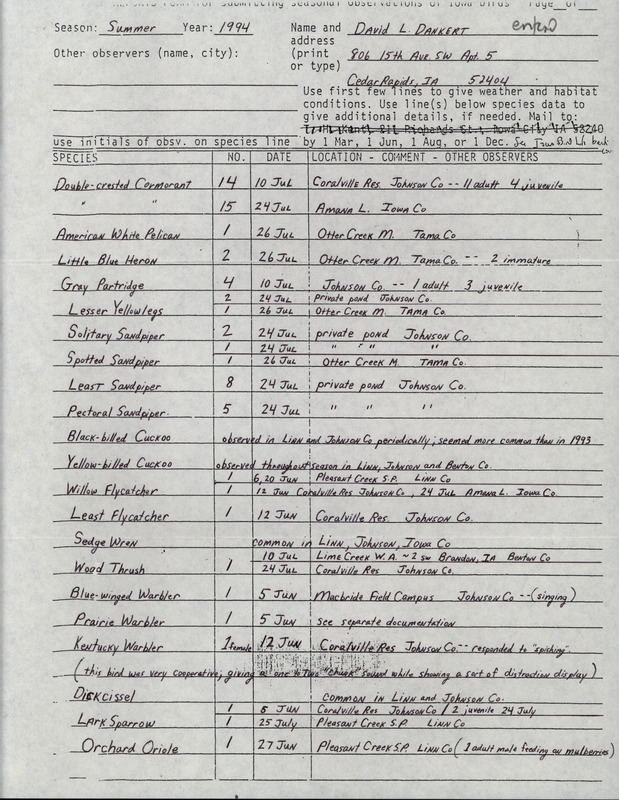 REPORTS FORM for submitting seasonal observations of Iowa birds Page of
Season: Summer Year: 1994 Name and David L. Dankert entrd
Other observers (name, city): address
(print 806 15th Ave. SW Apt. 5
or type)
Cedar Rapids, IA 52404
Use first few lines to give weather and habitat
conditions. Use line(s) below species data to
give additional details, if needed. Mail to:
T. H. Kent, 211 Richards St., Iowa City IA 52240
use initials of obsv. on species line by 1 Mar, 1 Jun, 1 Aug, or 1 Dec. See
SPECIES NO. DATE LOCATION - COMMENT - OTHER OBSERVERS
Double-crested Cormorant 14 10 Jul Coralville Res Johnson Co -- 11 adult 4 juvenile
" " 15 24 Jul Amana L. Iowa Co
American White Pelican 1 26 Jul Otter Creek M. Tama Co
Little Blue Heron 2 26 Jul Otter Creek M. Tama Co. -- 2 immature
Gray Partridge 4 10 Jul Johnson Co. -- 1 adult 3 juvenile
2 24 Jul private pond Johnson Co.
Lesser Yellowlegs 1 26 Jul Otter Creek M. Tama Co.
Solitary Sandpiper 2 24 Jul private pond Johnson Co.
1 24 Jul " " " "
Spotted Sandpiper 1 26 Jul Otter Creek M. Tama Co.
Least Sandpiper 8 24 Jul private pond Johnson Co.
Pectoral Sandpiper 5 24 Jul " " "
Black-billed Cuckoo observed in Linn and Johnson Co periodically; seemed more common than in 1993
Yellow-billed Cuckoo observed throughout season in Linn, Johnson and Benton Co.
1 6, 20 Jun Pleasant Creek S.P. Linn Co
Willow Flycatcher 1 12 Jun Coralville Res Johnson Co, 24 Jul Amana L. Iowa Co.
Least Flycatcher 1 12 Jun Coralville Res. Johnson Co.
Sedge Wren common in Linn, Johnson, Iowa Co
10 Jul Lime Creek W.A. ~2 sw Brandon, IA Benton Co
Wood Thrush 1 24 Jul Coralville Res Johnson Co.
Blue-winged Warbler 1 5 Jun Macbride Field Campus Johnson Co -- (singing)
Prairie Warbler 1 5 Jun see separate documentation
Kentucky Warbler 1 female 12 Jun Coralville Res Johnson Co. -- responded to "spishing".
(this bird was very cooperative; giving a one to two "chunk" sound while showing a sort of distraction display)
Dickcissel common in Linn and Johnson Co.
1 5 Jun Coralville Res Johnson Co / 2 juvenile 24 July
Lark Sparrow 1 25 July Pleasant Creek S.P. Linn Co
Orchard Oriole 1 27 Jun Pleasant Creek S.P. Linn Co (1 adult male feeding on mulberries)